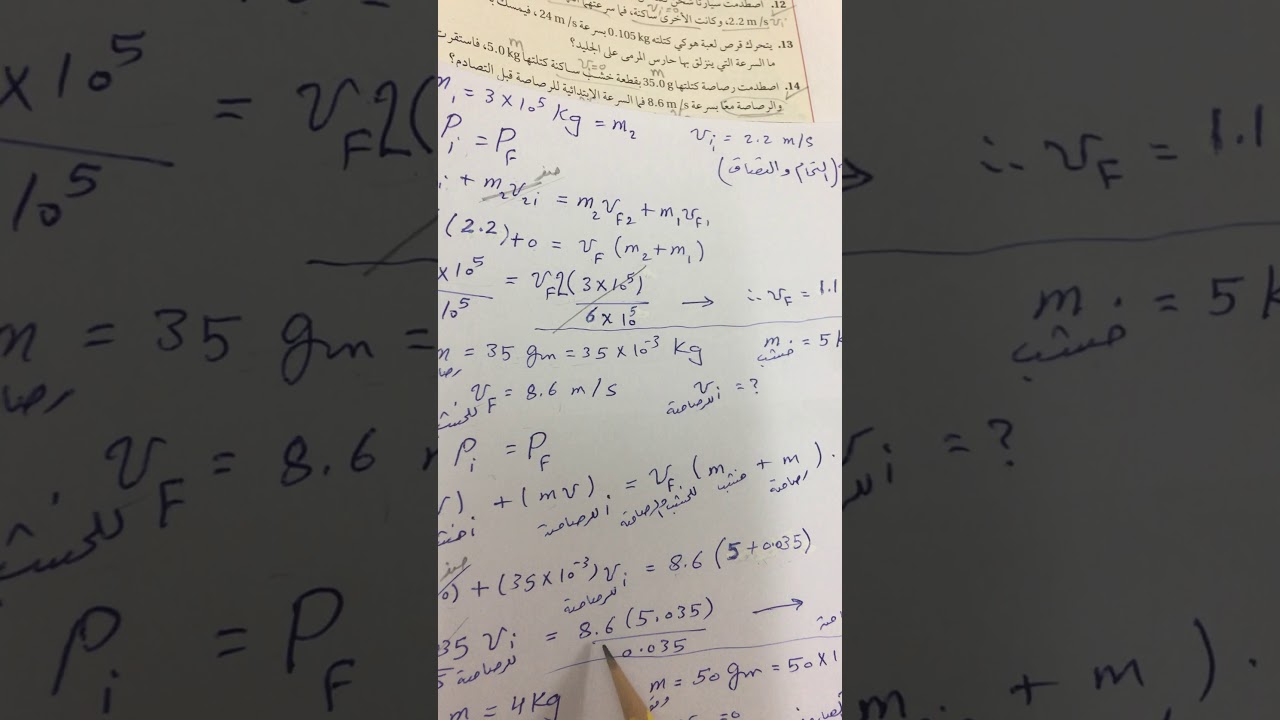 12. اصطدمت سيارتا شحن
2.2 m/s، وكانت الأخرى ساكنة، فما سرعتهما
vᵢ=0
13. يتحرك قرص لعبة هوكي كتلته 0.105 kg بسرعة 24 m/s، فيمسك
ما السرعة التي ينزلق بها حارس المرمى على الجليد؟
vᵢ=0 m m
14. اصطدمت رصاصة كتلتها 35.0 g بقطعة خشب ساكنة كتلتها 5.0 kg، فاستقرت
والرصاصة معًا بسرعة 8.6 m/s فما السرعة الابتدائية للرصاصة قبل التصادم؟
m₁ = 3 × 10⁵ Kg = m₂ vᵢ = 2.2 m/s
Pᵢ = P_F (التحام والتصاق)
+ m₂v₂ᵢ = m₂v_F₂ + m₁v_F₁
صفر
(2.2) + 0 = v_F (m₂ + m₁)
×10⁵ / 10⁵ = v_F 2(3×10⁵) / 6×10⁵ → ∴ v_F = 1.1
m = 35 gm = 35×10⁻³ Kg m خشب = 5 k
v_F = 8.6 m/s vᵢ للرصاصة = ?
Pᵢ = P_F
) + (mv)ᵢ للرصاصة = v_F للخشب والرصاصة (m خشب + m رصاصة).
صفر
0) + (35×10⁻³) vᵢ للرصاصة = 8.6 (5 + 0.035)
35 vᵢ للرصاصة = 8.6 (5.035) / 0.035 →
m = 4 Kg m = 50 gm = 50×1